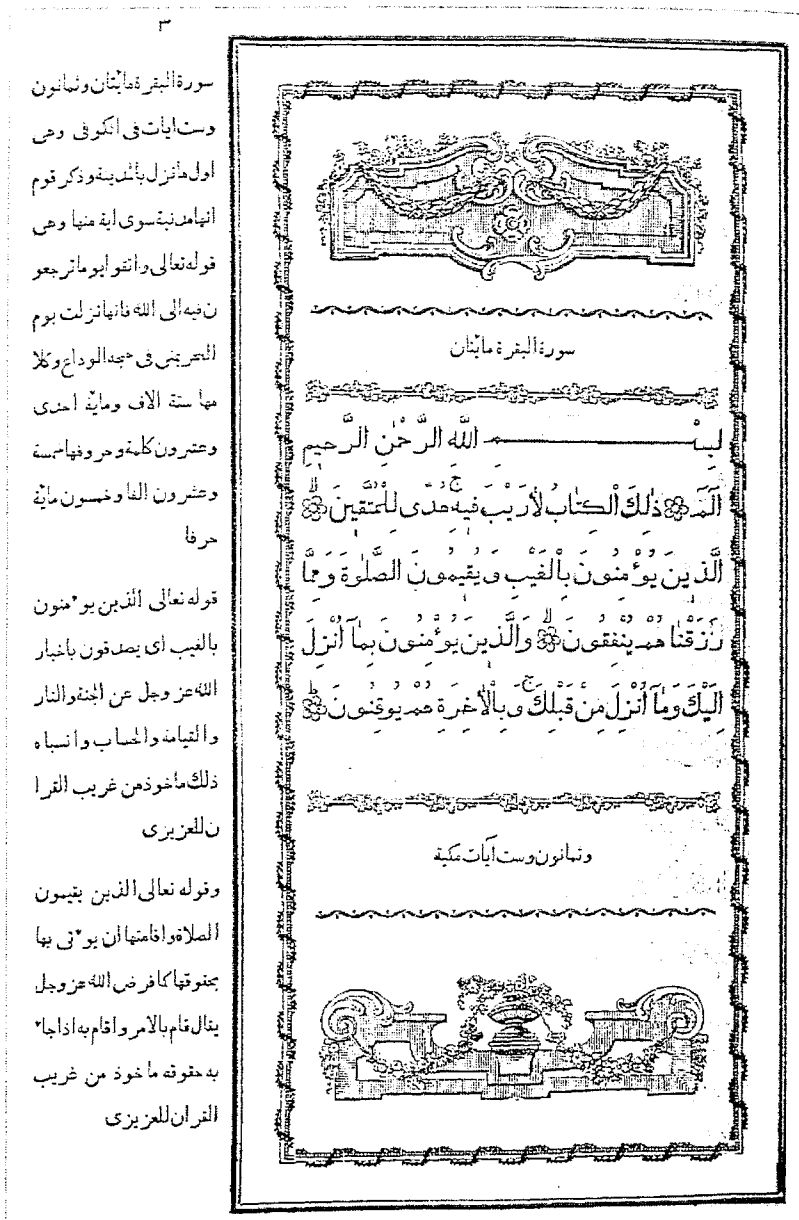 ٣
سورة البقرة مائتان
بِسْــــمِ اللَّهِ الرَّحْمٰنِ الرَّحِيمِ
الٓمٓ ۝ ذٰلِكَ الْكِتَابُ لَارَيْبَ فِيهِ ۛ هُدًى لِلْمُتَّقِينَ ۝
الَّذِينَ يُؤْمِنُونَ بِالْغَيْبِ وَيُقِيمُونَ الصَّلٰوةَ وَمِمَّا
رَزَقْنَا هُمْ يُنْفِقُونَ ۝ وَالَّذِينَ يُؤْمِنُونَ بِمَآ اُنْزِلَ
اِلَيْكَ وَمَآ اُنْزِلَ مِنْ قَبْلِكَ ۚ وَبِالْاٰخِرَةِ هُمْ يُوقِنُونَ ۝
وثمانون وست آيات مكية
سورة البقرة مائتان وثمانون
وست ايات فى الكوفى وهى
اول مانزل بالمدينة وذكر قوم
انها مدنية سوى اية منها وهى
قوله تعالى واتقوا يوما ترجعو
ن فيه الى الله فانها نزلت يوم
النحر بمنى فى حجه الوداع وكلا
مها ستة الاف ومائة احدى
وعشرون كلمة وحروفها خمسة
وعشرون الفا وخمسون مائة
حرفا
قوله تعالى الذين يوٴمنون
بالغيب اى يصدقون باخبار
الله عز وجل عن الجنة والنار
والقيامة والحساب واشباه
ذلك ماخوذ من غريب القرا
ن للعزيزى
وقوله تعالى الذين يقيمون
الصلاة واقامتها ان يوٴتى بها
بحقوقها كما فرض الله عز وجل
يقال قام بالامر واقام به اذا جاء
به حقوقه ماخوذ من غريب
القران للعزيزى